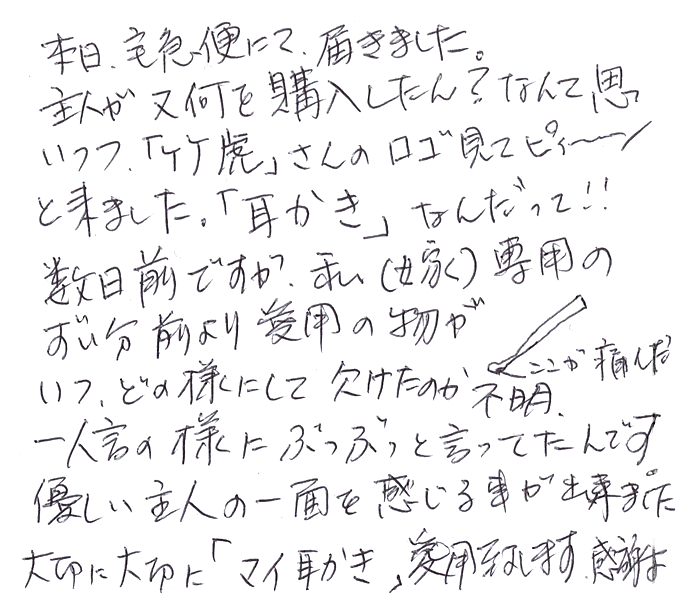 本日、宅急便にて、届きました。
主人が又何を購入したん？なんて思
いつつ、「竹虎」さんのロゴ見てピィ〜〜ン
と来ました。「耳かき」なんだって!!
数日前ですが、私(女家く)専用の
ずい分前より愛用の物が
いつ、どの様にして欠けたのか不明、
ここが痛んだ
一人言の様にぶつぶつと言ってたんです
優しい主人の一面を感じる事が出来ました。
大切に大切に「マイ耳かき」愛用致します。感謝よ